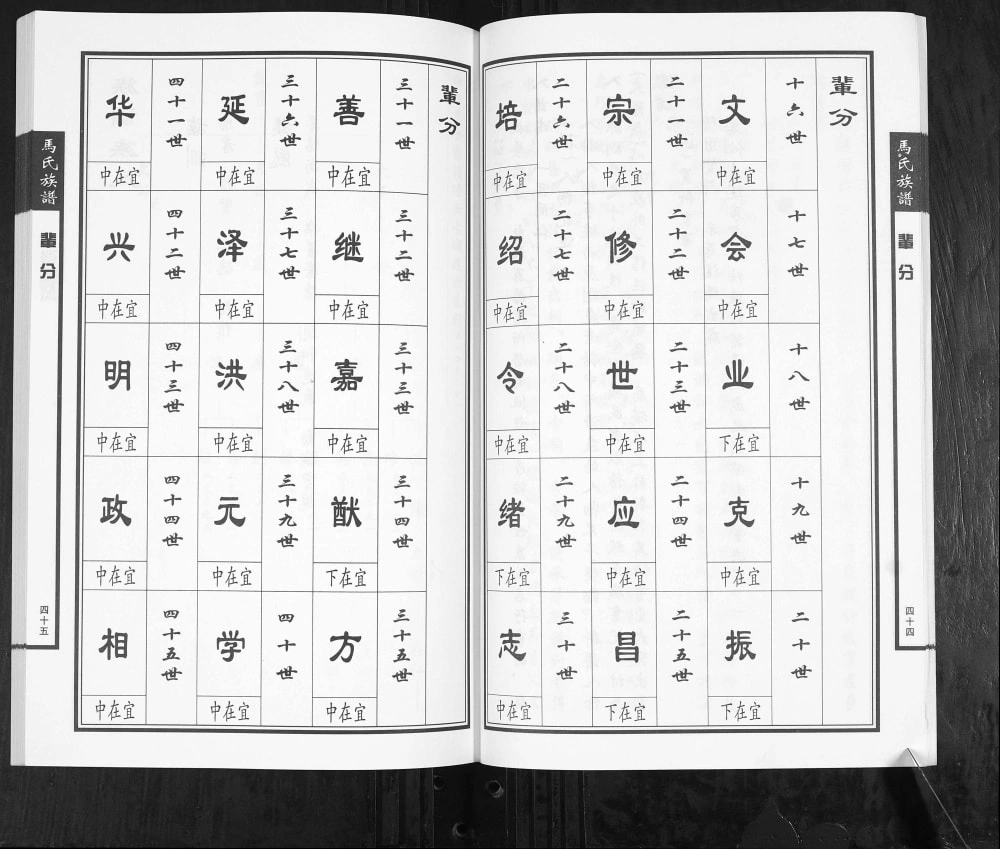 馬氏族譜
輩分
四十四
輩分
十六世
文
宜在中
十七世
会
宜在中
十八世
业
宜在下
十九世
克
宜在中
二十世
振
宜在下
二十一世
宗
宜在中
二十二世
修
宜在中
二十三世
世
宜在中
二十四世
应
宜在中
二十五世
昌
宜在下
二十六世
培
宜在中
二十七世
绍
宜在中
二十八世
令
宜在中
二十九世
绪
宜在下
三十世
志
宜在中
輩分
三十一世
善
宜在中
三十二世
继
宜在中
三十三世
嘉
宜在中
三十四世
猷
宜在下
三十五世
方
宜在中
三十六世
延
宜在中
三十七世
泽
宜在中
三十八世
洪
宜在中
三十九世
元
宜在中
四十世
学
宜在中
四十一世
华
宜在中
四十二世
兴
宜在中
四十三世
明
宜在中
四十四世
政
宜在中
四十五世
相
宜在中
馬氏族譜
輩分
四十五